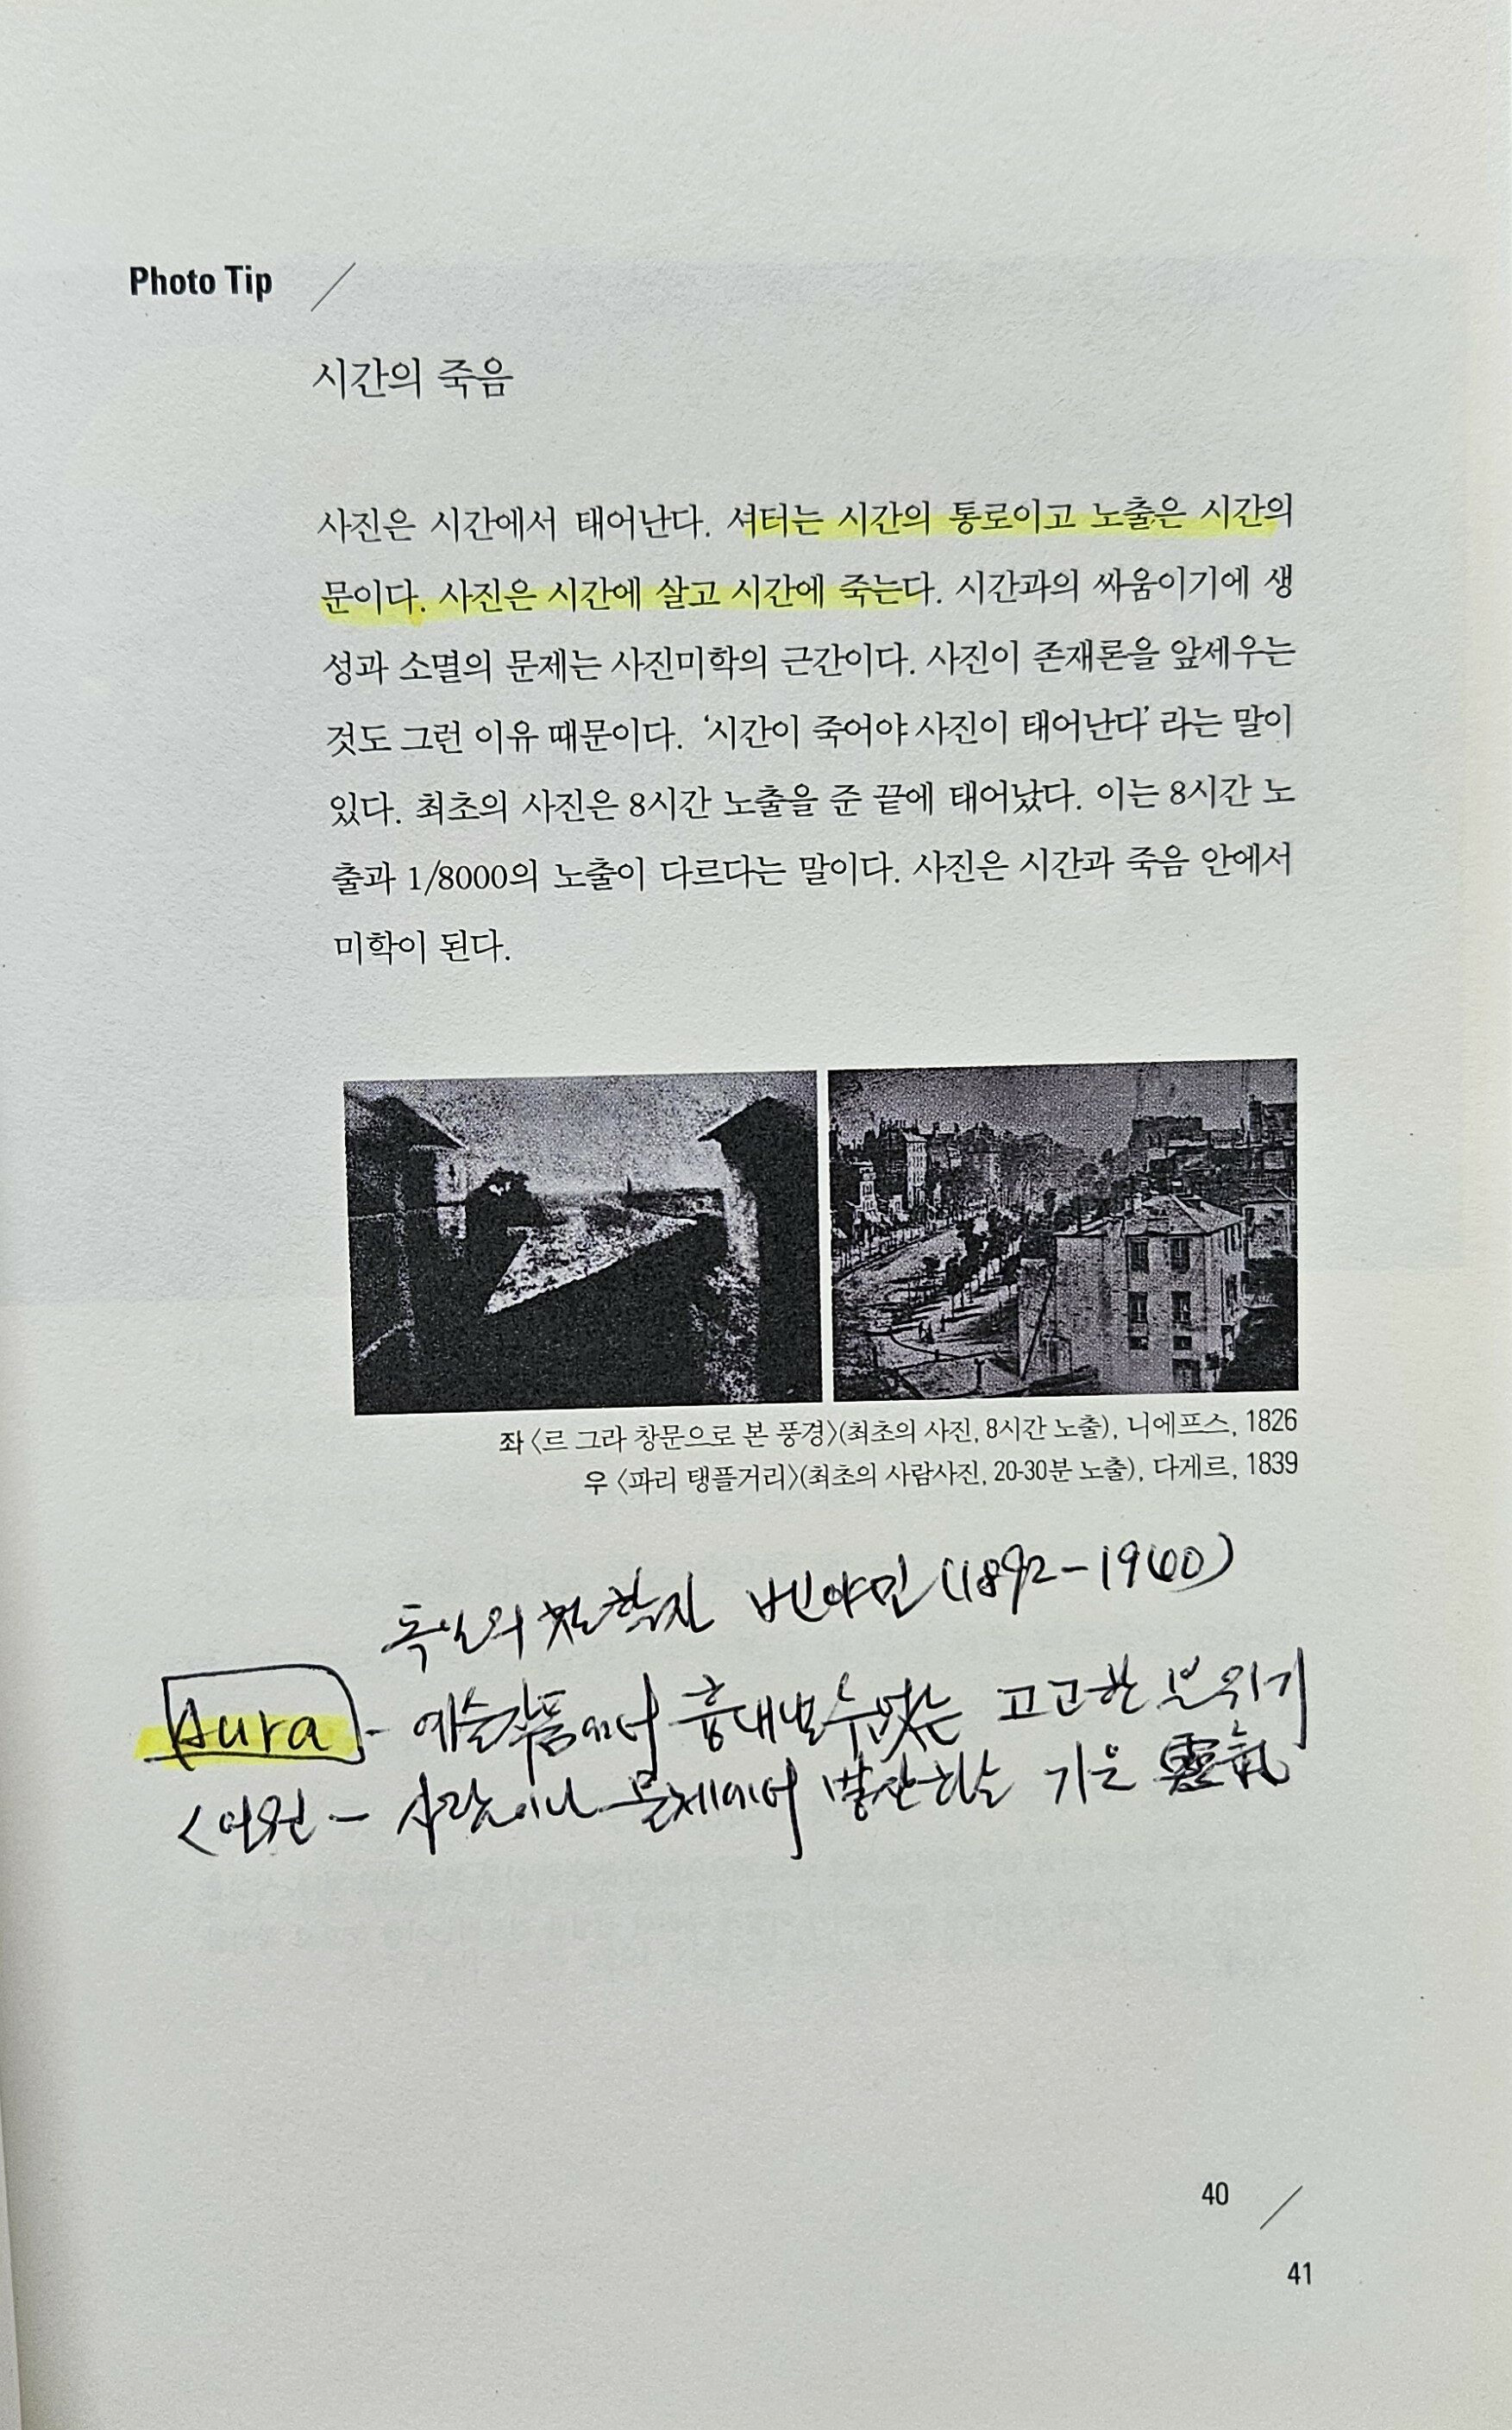 Photo Tip
시간의 죽음
사진은 시간에서 태어난다. 셔터는 시간의 통로이고 노출은 시간의
문이다. 사진은 시간에 살고 시간에 죽는다. 시간과의 싸움이기에 생
성과 소멸의 문제는 사진미학의 근간이다. 사진이 존재론을 앞세우는
것도 그런 이유 때문이다. ‘시간이 죽어야 사진이 태어난다’ 라는 말이
있다. 최초의 사진은 8시간 노출을 준 끝에 태어났다. 이는 8시간 노
출과 1/8000의 노출이 다르다는 말이다. 사진은 시간과 죽음 안에서
미학이 된다.
좌 〈르 그라 창문으로 본 풍경〉(최초의 사진, 8시간 노출), 니에프스, 1826
우 〈파리 탱플거리〉(최초의 사람사진, 20-30분 노출), 다게르, 1839
독일의 철학자 벤야민 (1892-1940)
Aura - 예술작품에서 흉내낼수없는 고고한 분위기
<어원 - 사람이나 물체에서 발산하는 기운 靈氣
40
41